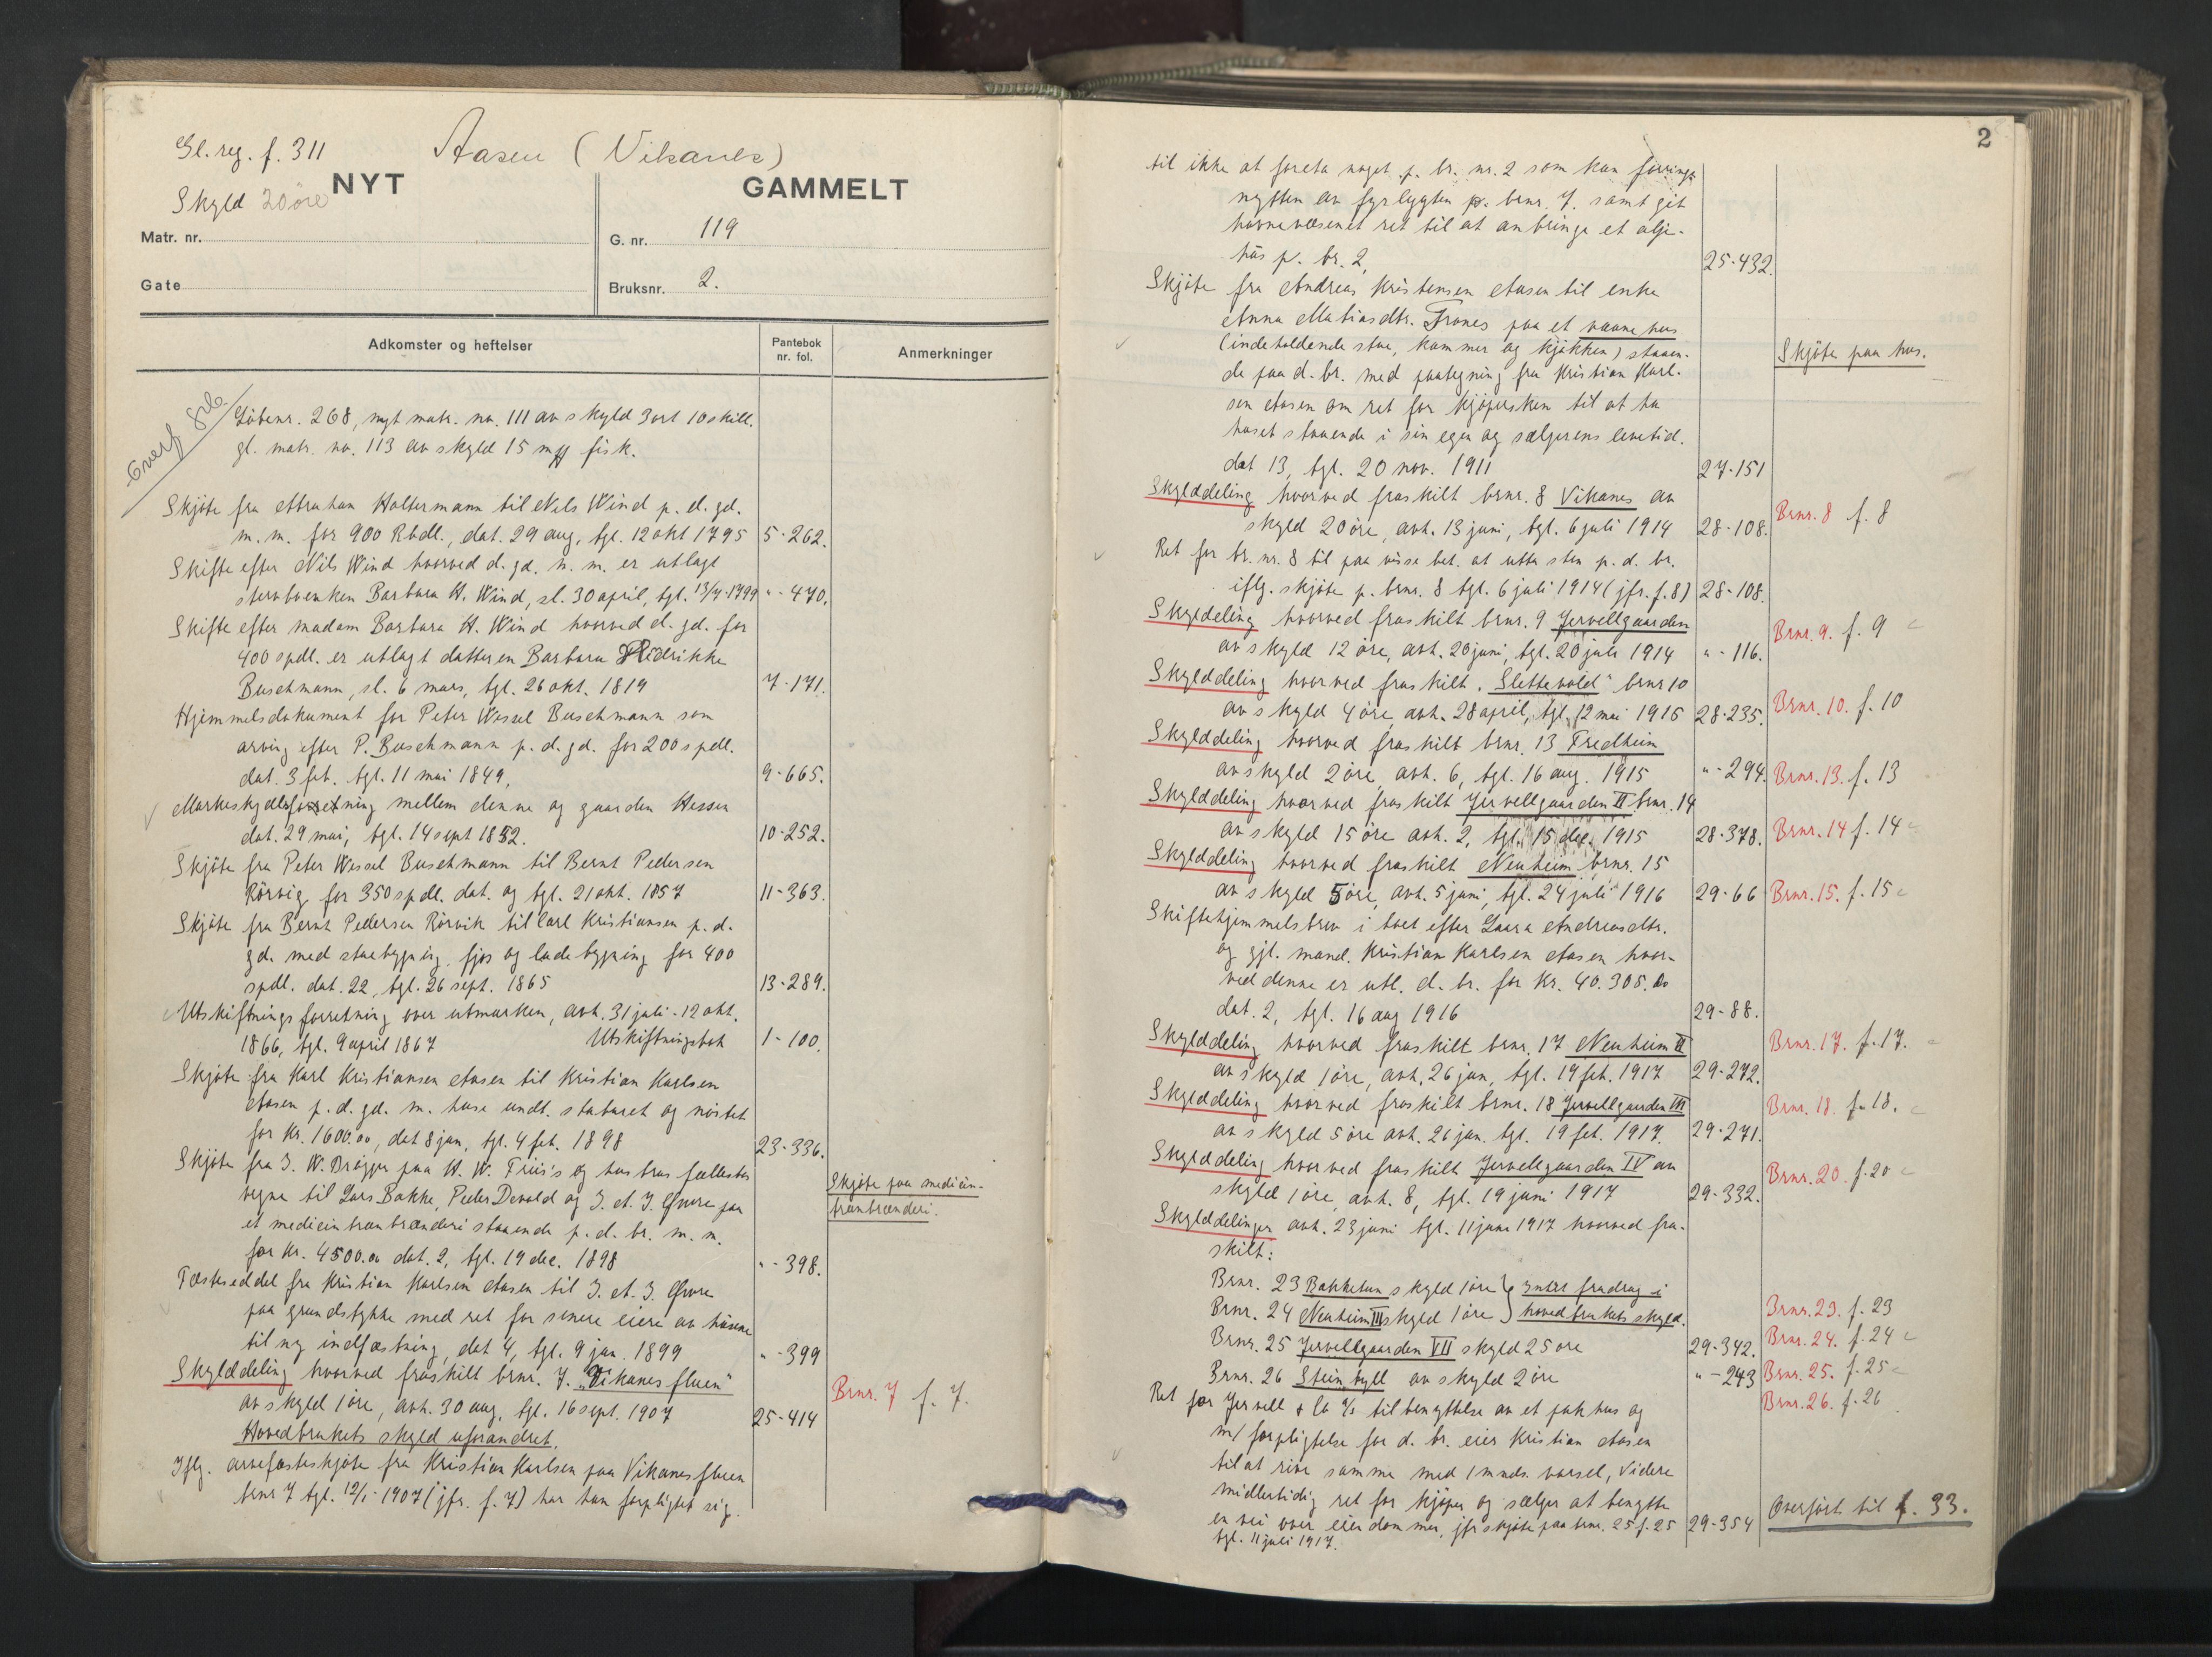 Gl. reg. f. 311
Aasen (Vikanes)
Skyld 20 öre
NYT
GAMMELT
Matr. nr.
G. nr. 119
Gate
Bruksnr. 2.
Adkomster og heftelser
Pantebok nr. fol.
Anmerkninger
Overf
Löbenr. 268, nyt matr. no. 111 av skyld 3 ort 10 skill.
gl. matr. no. 113 av skyld 15 fisk.
Skjöte fra Abraham Holtermann til Nils Wind p. d. gd.
m. m. for 900 Rbdl., dat. 29 aug, tgl. 12 okt 1795 5-262.
Skifte efter Nils Wind hvorved d. gd. m. m. er utlagt
stervboenken Barbara H. Wind, sl. 30 april, tgl. 13/7-1799 "-470.
Skifte efter madam Barbara H. Wind hvorved d. gd. for
400 spdl. er utlagt datteren Barbara Hidrikke
Buschmann, sl. 6 mars, tgl. 26 okt. 1819 7-171.
Hjemmelsdokument for Peter Wessel Buschmann som
arving efter P. Buschmann p. d. gd. for 200 spdl.
dat. 3 feb. tgl. 11 mai 1849, 9-665.
Markeskjelsforretning mellem denne og gaarden Hessen
dat. 29 mai, tgl. 14 sept 1852. 10-252.
Skjöte fra Peter Wessel Buschmann til Bernt Pedersen
Rörvig for 350 spdl. dat. og tgl. 21 okt. 1857 11-363.
Skjöte fra Bernt Pedersen Rörvik til Carl Kristiansen p. d.
gd. med stuebygning, fjös og ladebygning for 400
spdl. dat. 22, tgl. 26 sept. 1865 13-289.
Utskiftningsforretning over utmarken, avh. 31 juli - 12 okt.
1866, tgl. 9 april 1867 Utskiftningsbok 1-100.
Skjöte fra Karl Kristiansen Aasen til Kristian Karlsen
Aasen p. d. gd. m. huse undt. stabburet og nöstet
for Kr. 1600.00, dat 8 jan, tgl. 4 feb. 1898 23-336.
Skjöte fra J. W. Brögger paa H. W. Friis's og hustrus fællesbos
vegne til Lars Bakke, Peder Devold og J. A. J. Øwre paa
et medicintranbrænderi staaende p. d. br. m. m.
for Kr. 4500.00 dat. 2, tgl. 19 dec. 1898 "-398.
Skjöte paa medicin-
tranbrænderi.
Fæsteseddel fra Kristian Karlsen Aasen til J. A. J. Øwre
paa grundstykke med ret for senere eiere av husene
til ny indfæstning, dat 4, tgl. 9 jan. 1899 "-399
Skylddeling hvorved fraskilt brnr. 7. "Vikanesfluen"
av skyld 1 öre, avh. 30 aug, tgl. 16 sept. 1907 25-414
Brnr. 7 f. 7.
Hovedbrukets skyld uforandret.
Iflg. arvefæsteskjöte fra Kristian Karlsen paa Vikanesfluen
brnr 7 tgl. 12/1-1907 (jfr. f. 7) har han forpligtet sig
2
til ikke at foreta noget p. br. nr. 2 som kan forringe
nytten av fyrlygten p. brnr. 7. samt git
havnevæsenet ret til at anbringe et olje-
hus p. br. 2, 25-432.
Skjöte fra Andreas Kristensen Aasen til enke
Anna Matiasdtr. Trones paa et vaanehus
(indeholdende stue, kammer og kjökken) staaen-
de paa d. br. med paategning fra Kristian Karl-
sen Aasen om ret for kjöpersken til at ha
huset staaende i sin egen og sælgerens levetid.
dat 13, tgl. 20 nov. 1911 27-151
Skjöte paa hus.
Skylddeling hvorved fraskilt brnr. 8 Vikanes av
skyld 20 öre, avh. 13 juni, tgl. 6 juli 1914 28-108.
Brnr. 8 f. 8
Ret for br. nr. 8 til paa visse bet. at utta sten p. d. br.
iflg. skjöte p. brnr. 8 tgl. 6 juli 1914 (jfr. f. 8) 28-108.
Skylddeling hvorved fraskilt brnr. 9 Jervellgaarden
av skyld 12 öre, avh. 20 juni, tgl. 20 juli 1914 "-116.
Brnr. 9. f. 9
Skylddeling hvorved fraskilt "Slettevold" brnr 10
av skyld 4 öre, avh. 28 april, tgl. 12 mai 1915 28-235.
Brnr. 10. f. 10
Skylddeling hvorved fraskilt brnr. 13 Fredheim
av skyld 2 öre, avh. 6, tgl. 16 aug. 1915 "-294.
Brnr. 13. f. 13
Skylddeling hvorved fraskilt Jervellgaarden II brnr. 14
av skyld 15 öre avh. 2, tgl. 15 dec. 1915 28-378.
Brnr. 14 f. 14
Skylddeling hvorved fraskilt Neuheim brnr. 15
av skyld 5 öre, avh. 5 juni, tgl. 24 juli 1916 29-66
Brnr. 15. f. 15
Skiftehjemmelsbrev i boet efter Laura Andreasdtr.
og gjl. mand. Kristian Karlsen Aasen hvor-
ved denne er utl. d. br. for Kr. 40.305.00
dat. 2, tgl. 16 aug 1916 29-88.
Skylddeling hvorved fraskilt brnr. 17 Neuheim II
av skyld 1 öre, avh. 26 jan, tgl. 19 feb. 1917 29-272.
Brnr. 17. f. 17.
Skylddeling hvorved fraskilt brnr. 18 Jervellgaarden III
av skyld 5 öre avh. 26 jan. tgl. 19 feb. 1917. 29-271.
Brnr. 18. f. 18.
Skylddeling hvorved fraskilt Jervellgaarden IV av
skyld 1 öre, avh. 8, tgl. 19 juni 1917 29-332.
Brnr. 20. f. 20
Skylddelinger avh. 23 juni tgl. 11 juni 1917 hvorved fra-
skilt:
Brnr. 23 Bakketun skyld 1 öre } Intet fradrag i
Brnr. 24 Neuheim III skyld 1 öre } hovedbrukets skyld.
Brnr. 23. f. 23
Brnr. 25 Jervellgaarden VII skyld 25 öre 29-342.
Brnr. 24. f. 24
Brnr. 26 Steinhyll av skyld 2 öre "-243
Brnr. 25. f. 25
Brnr. 26. f. 26
Ret for Jervell & Co A/S til benyttelse av et pakhus og
m/ forpligtelse for d. br. eier Kristian Aasen
til at rive samme med 1 mnds. varsel, Videre
midlertidig ret for kjöper og sælger at benytte
en vei over eiendommen, jfr skjöte paa brnr. 25 f. 25 29-354
tgl. 11 juli 1917.
Overfört til f. 33.